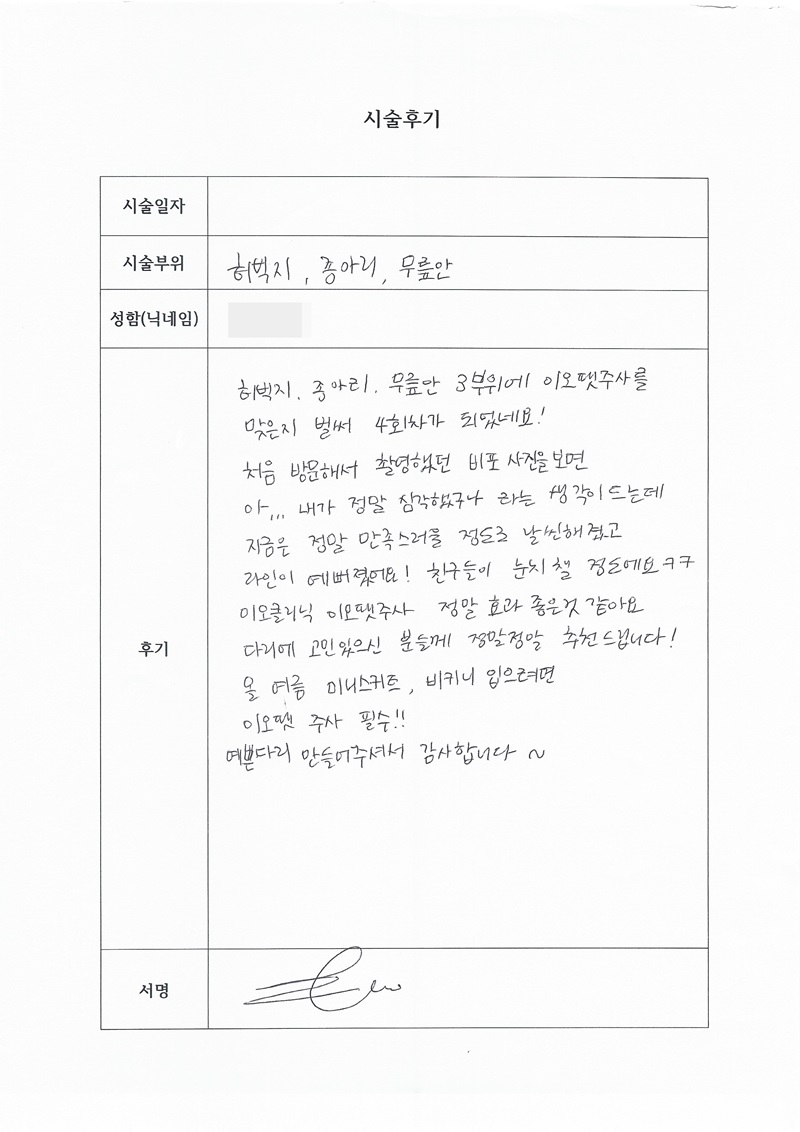 시술후기
시술일자
시술부위 허벅지, 종아리, 무릎안
성함(닉네임)
후기
허벅지. 종아리. 무릎안 3부위에 이오팻주사를
맞은지 벌써 4회차가 되었네요!
처음 방문해서 촬영했던 비포 사진을보면
아,,, 내가 정말 심각했구나 라는 생각이 드는데
지금은 정말 만족스러울 정도로 날씬해졌고
라인이 예뻐졌어요! 친구들이 눈치 챌 정도에요ㅋㅋ
이오클리닉 이오팻주사 정말 효과 좋은것 같아요
다리에 고민있으신 분들께 정말정말 추천드립니다!
올 여름 미니스커트, 비키니 입으려면
이오팻 주사 필수!!
예쁜다리 만들어주셔서 감사합니다 ~
서명